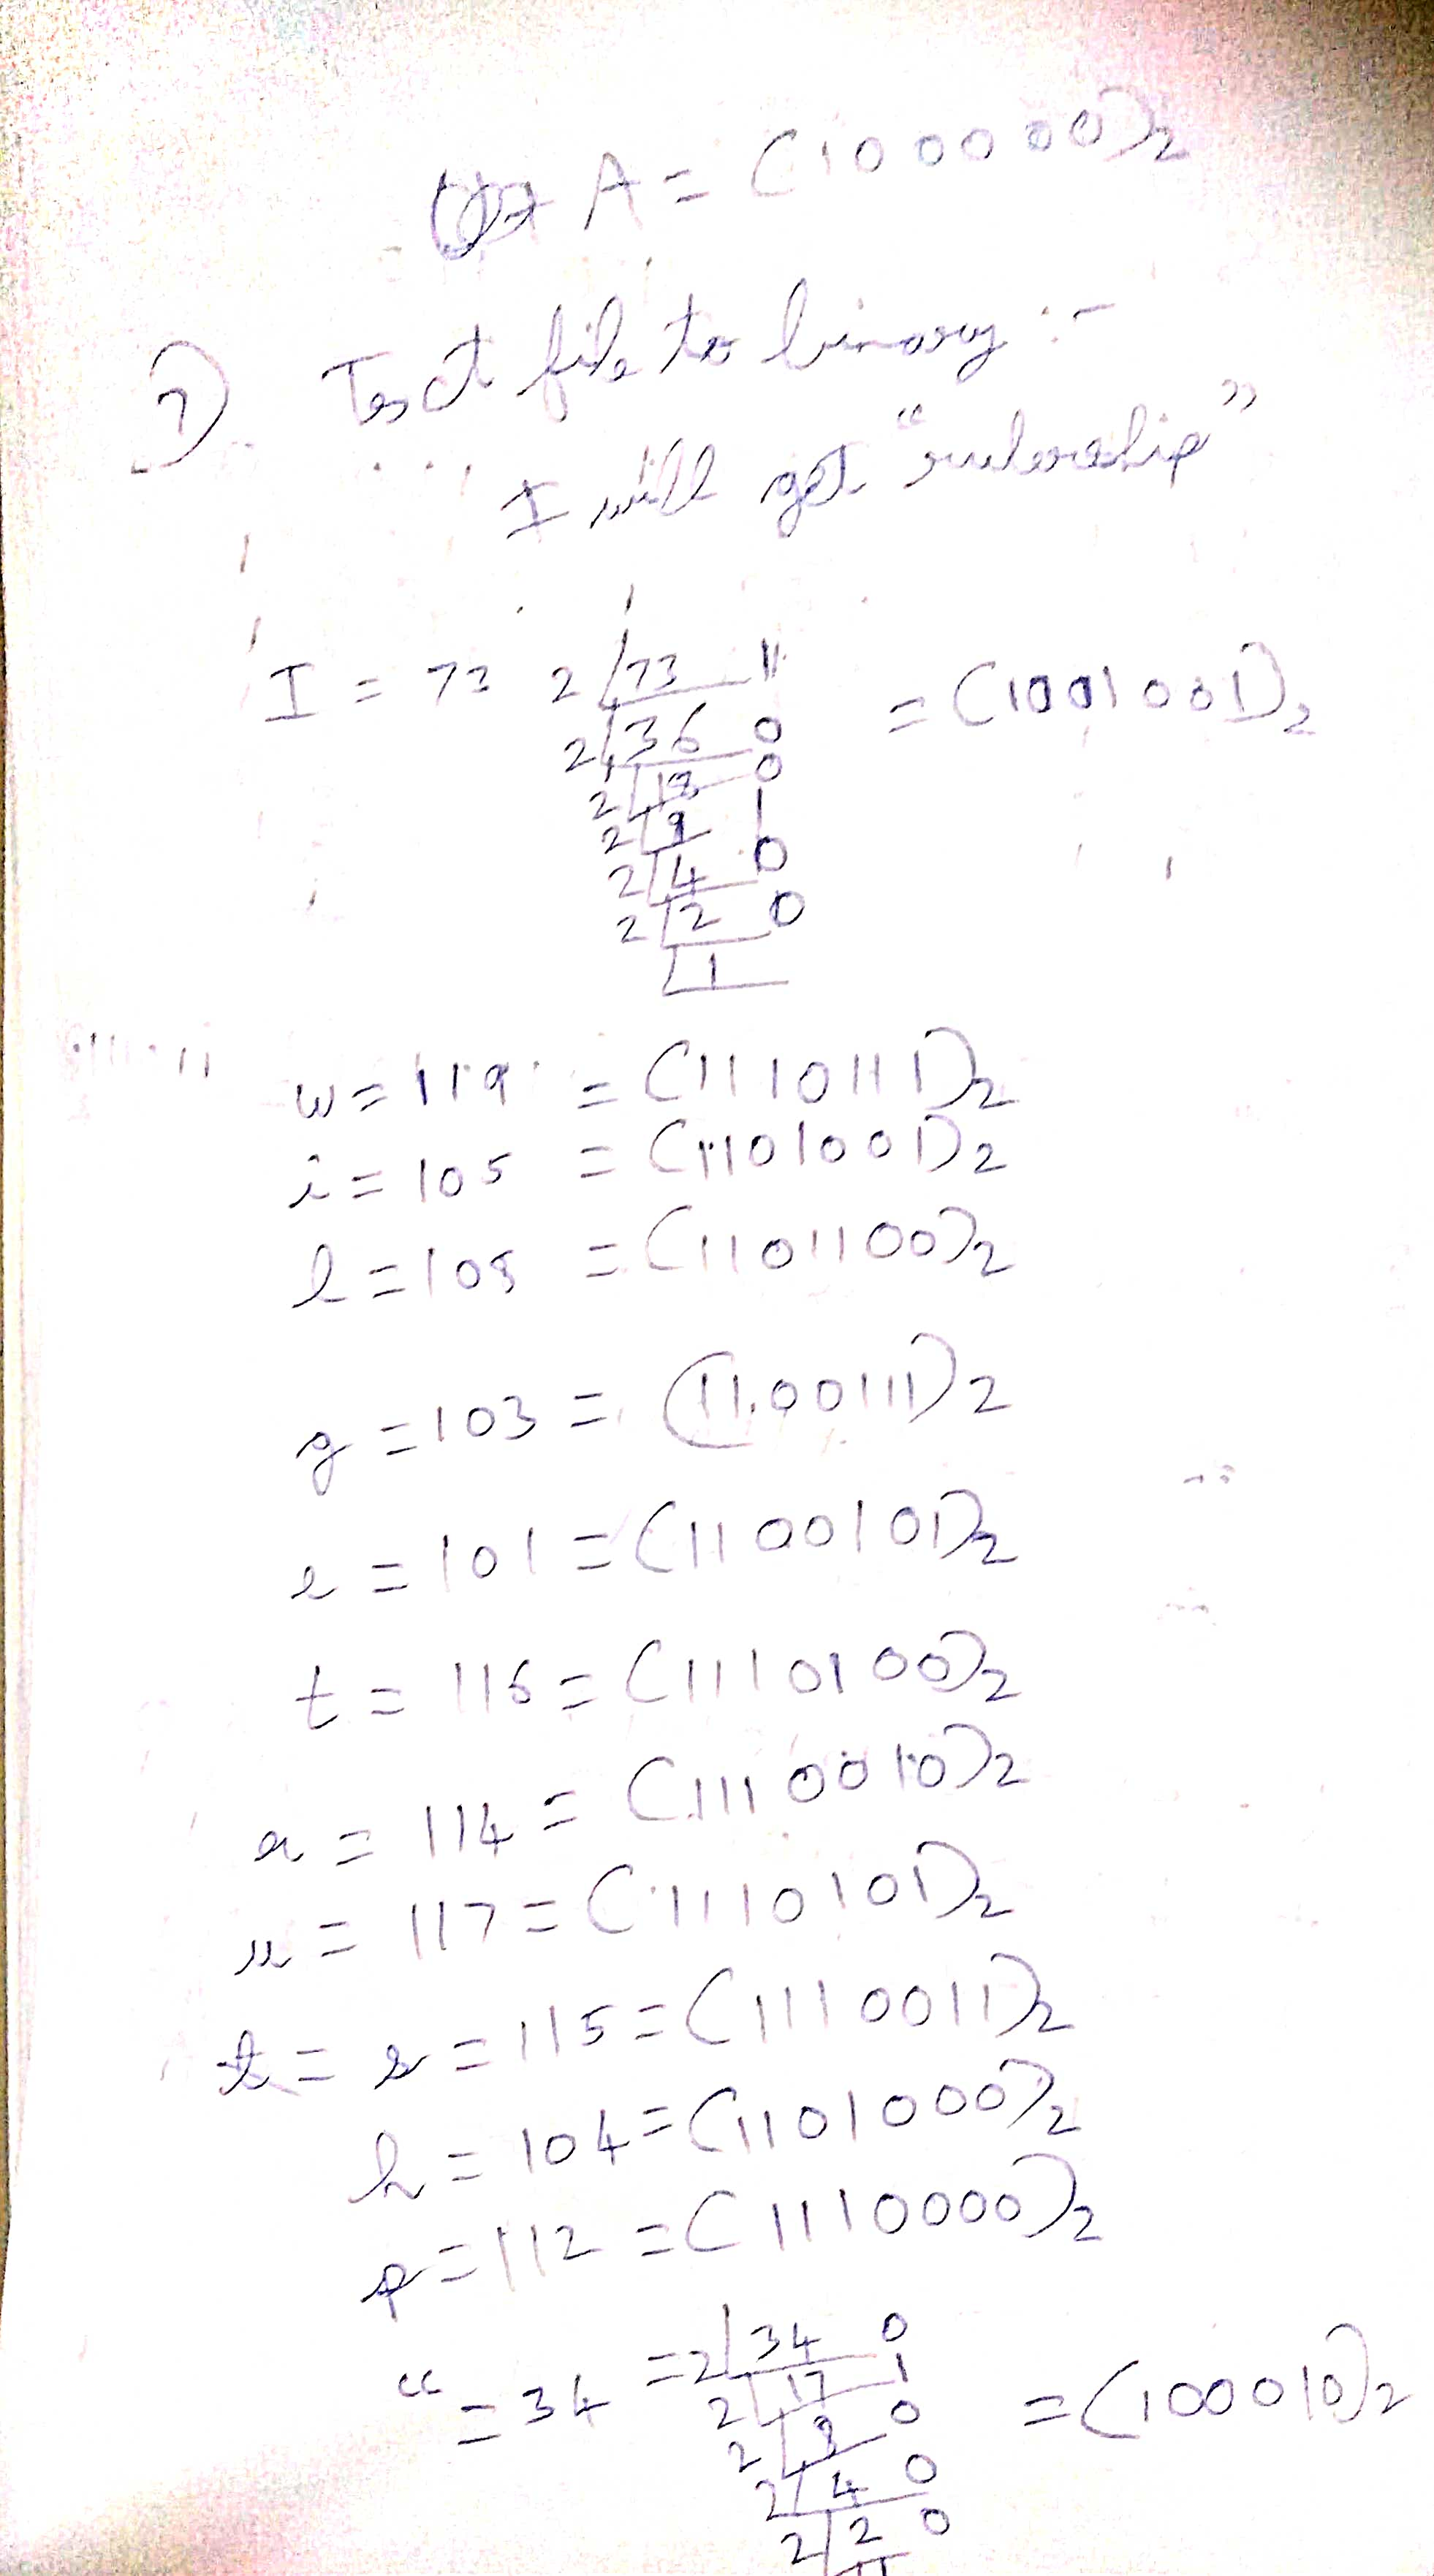 A = (100000)2
1) Text file to binary :-
I will get "rulership"
I = 73 2 73 1 = (1001001)2
2 36 0
2 18 0
2 9 1
2 4 0
2 2 0
1
w = 119 = (1110111)2
i = 105 = (1101001)2
l = 108 = (1101100)2
g = 103 = (1100111)2
e = 101 = (1100101)2
t = 116 = (1110100)2
r = 114 = (1110010)2
u = 117 = (1110101)2
s = 115 = (1110011)2
h = 104 = (1101000)2
p = 112 = (1110000)2
“ = 34 = 2 34 0 = (100010)2
2 17 1
2 8 0
2 4 0
2 2 0